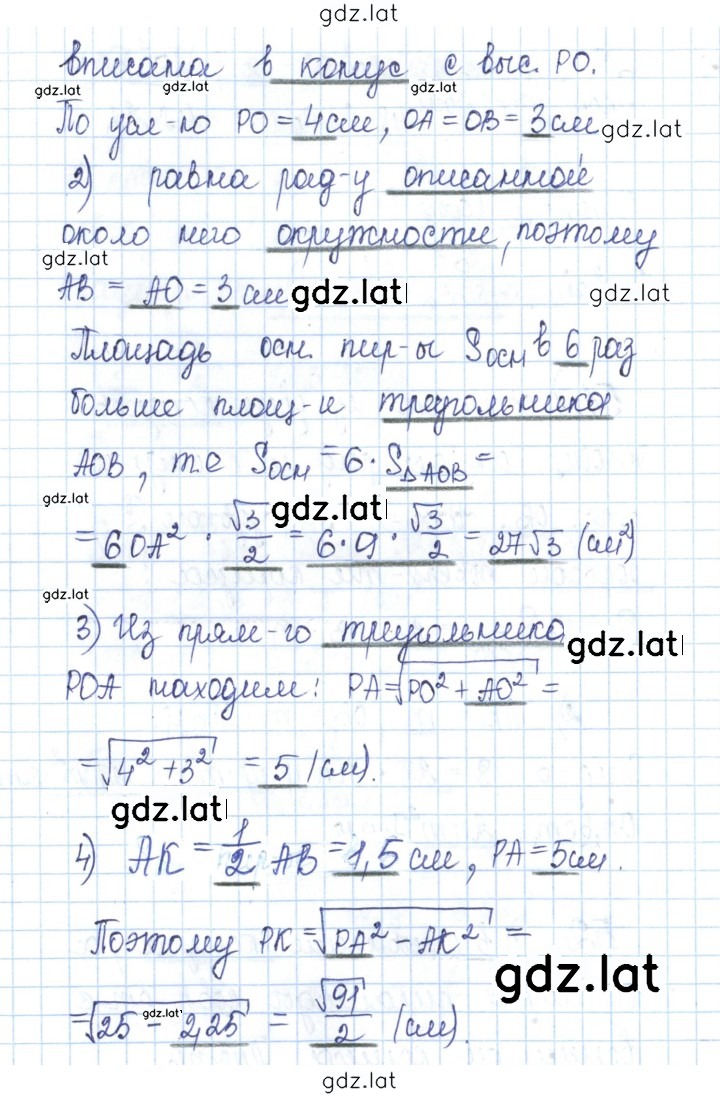 gdz.lat
вписана в конус с выс. PO.
gdz.lat gdz.lat gdz.lat
По усл-ю PO = 4см, OA = OB = 3см gdz.lat
2) равна рад-у описанной
около него окружности, поэтому
gdz.lat
AB = AO = 3 см gdz.lat gdz.lat
Площадь осн. пир-ы Sосн в 6 раз
больше площ-и треугольника
AOB, т.е Sосн = 6 · S△AOB =
gdz.lat gdz.lat
= 6 OA² · √3/2 = 6 · 9 · √3/2 = 27√3 (см²)
gdz.lat
3) Из прям-го треугольника gdz.lat
POA находим: PA = √(PO² + AO²) =
= √(4² + 3²) = 5 (см).
gdz.lat
4) AK = 1/2 AB = 1,5 см, PA = 5см.
Поэтому PK = √(PA² - AK²) =
gdz.lat
= √(25 - 2,25) = √91/2 (см).
gdz.lat
gdz.lat